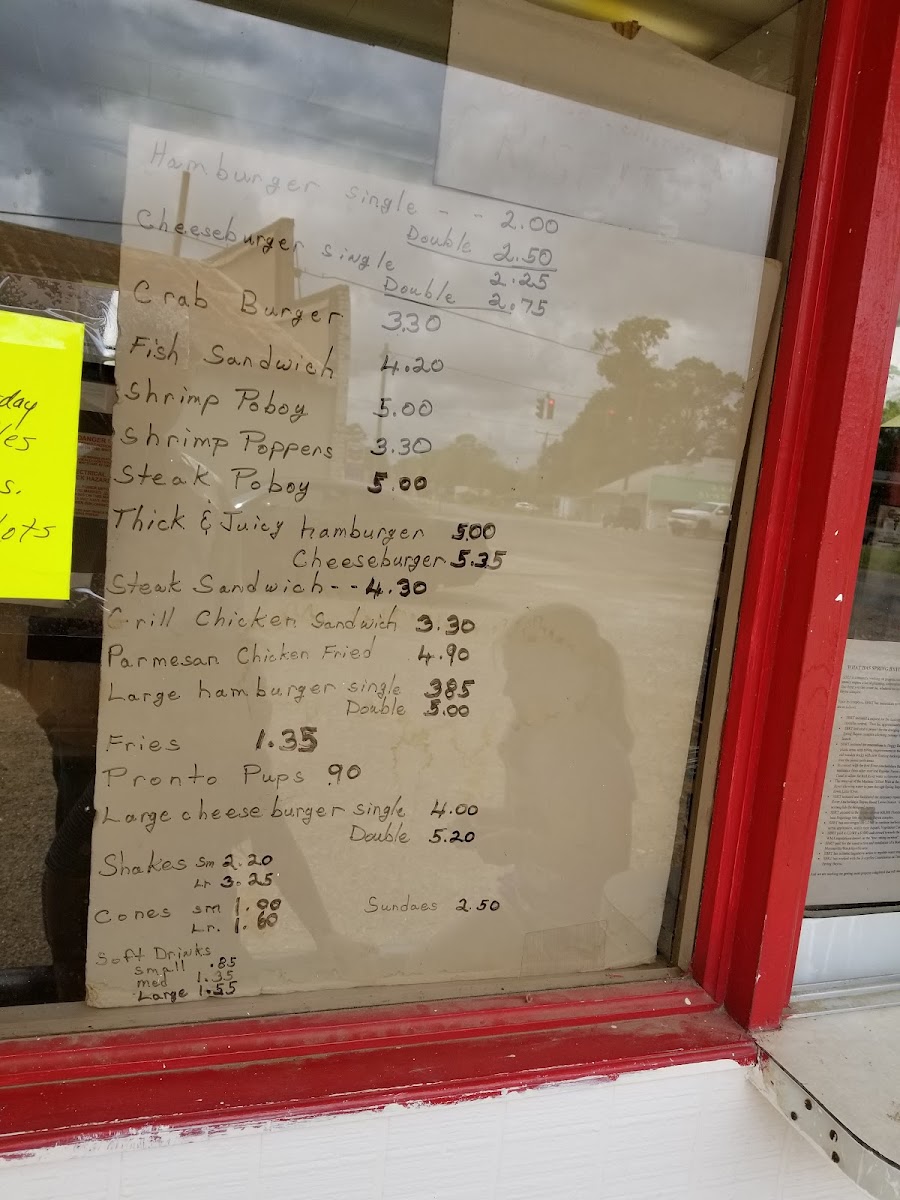 Hamburger single - - 2.00
Double 2.50
Cheeseburger single 2.25
Double 2.75
Crab Burger 3.30
Fish Sandwich 4.20
Shrimp Poboy 5.00
Shrimp Poppers 3.30
Steak Poboy 5.00
Thick & Juicy hamburger 5.00
Cheeseburger 5.35
Steak Sandwich -- 4.30
Grill Chicken Sandwich 3.30
Parmesan Chicken Fried 4.90
Large hamburger single 385
Double 5.00
Fries 1.35
Pronto Pups .90
Large cheese burger single 4.00
Double 5.20
Shakes Sm 2.20
Lr 3.25
Cones sm 1.00
Lr. 1.60
Sundaes 2.50
Soft Drinks
small .85
med 1.35
Large 1.55
day
les
s.
lots